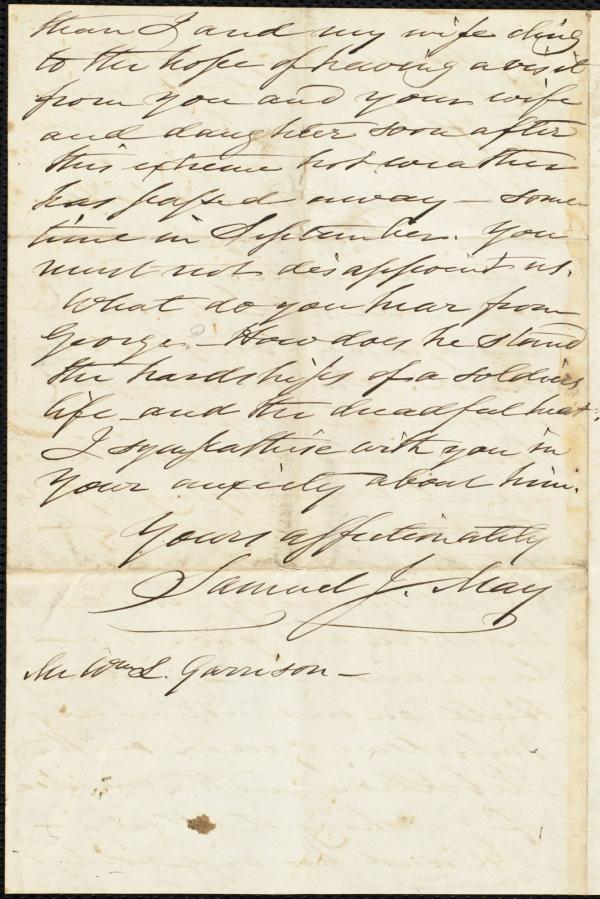 than I and my wife cling
to the hope of having a visit
from you and your wife
and daughter soon after
this extreme hot weather
has passed away — some
time in September. You
must not disappoint us.
What do you hear from
George — How does he stand
the hardships of a soldiers
life and the dreadful heat;
I sympathise with you in
your anxiety about him.
Yours affectionately
Samuel J. May
Mr Wm L. Garrison —